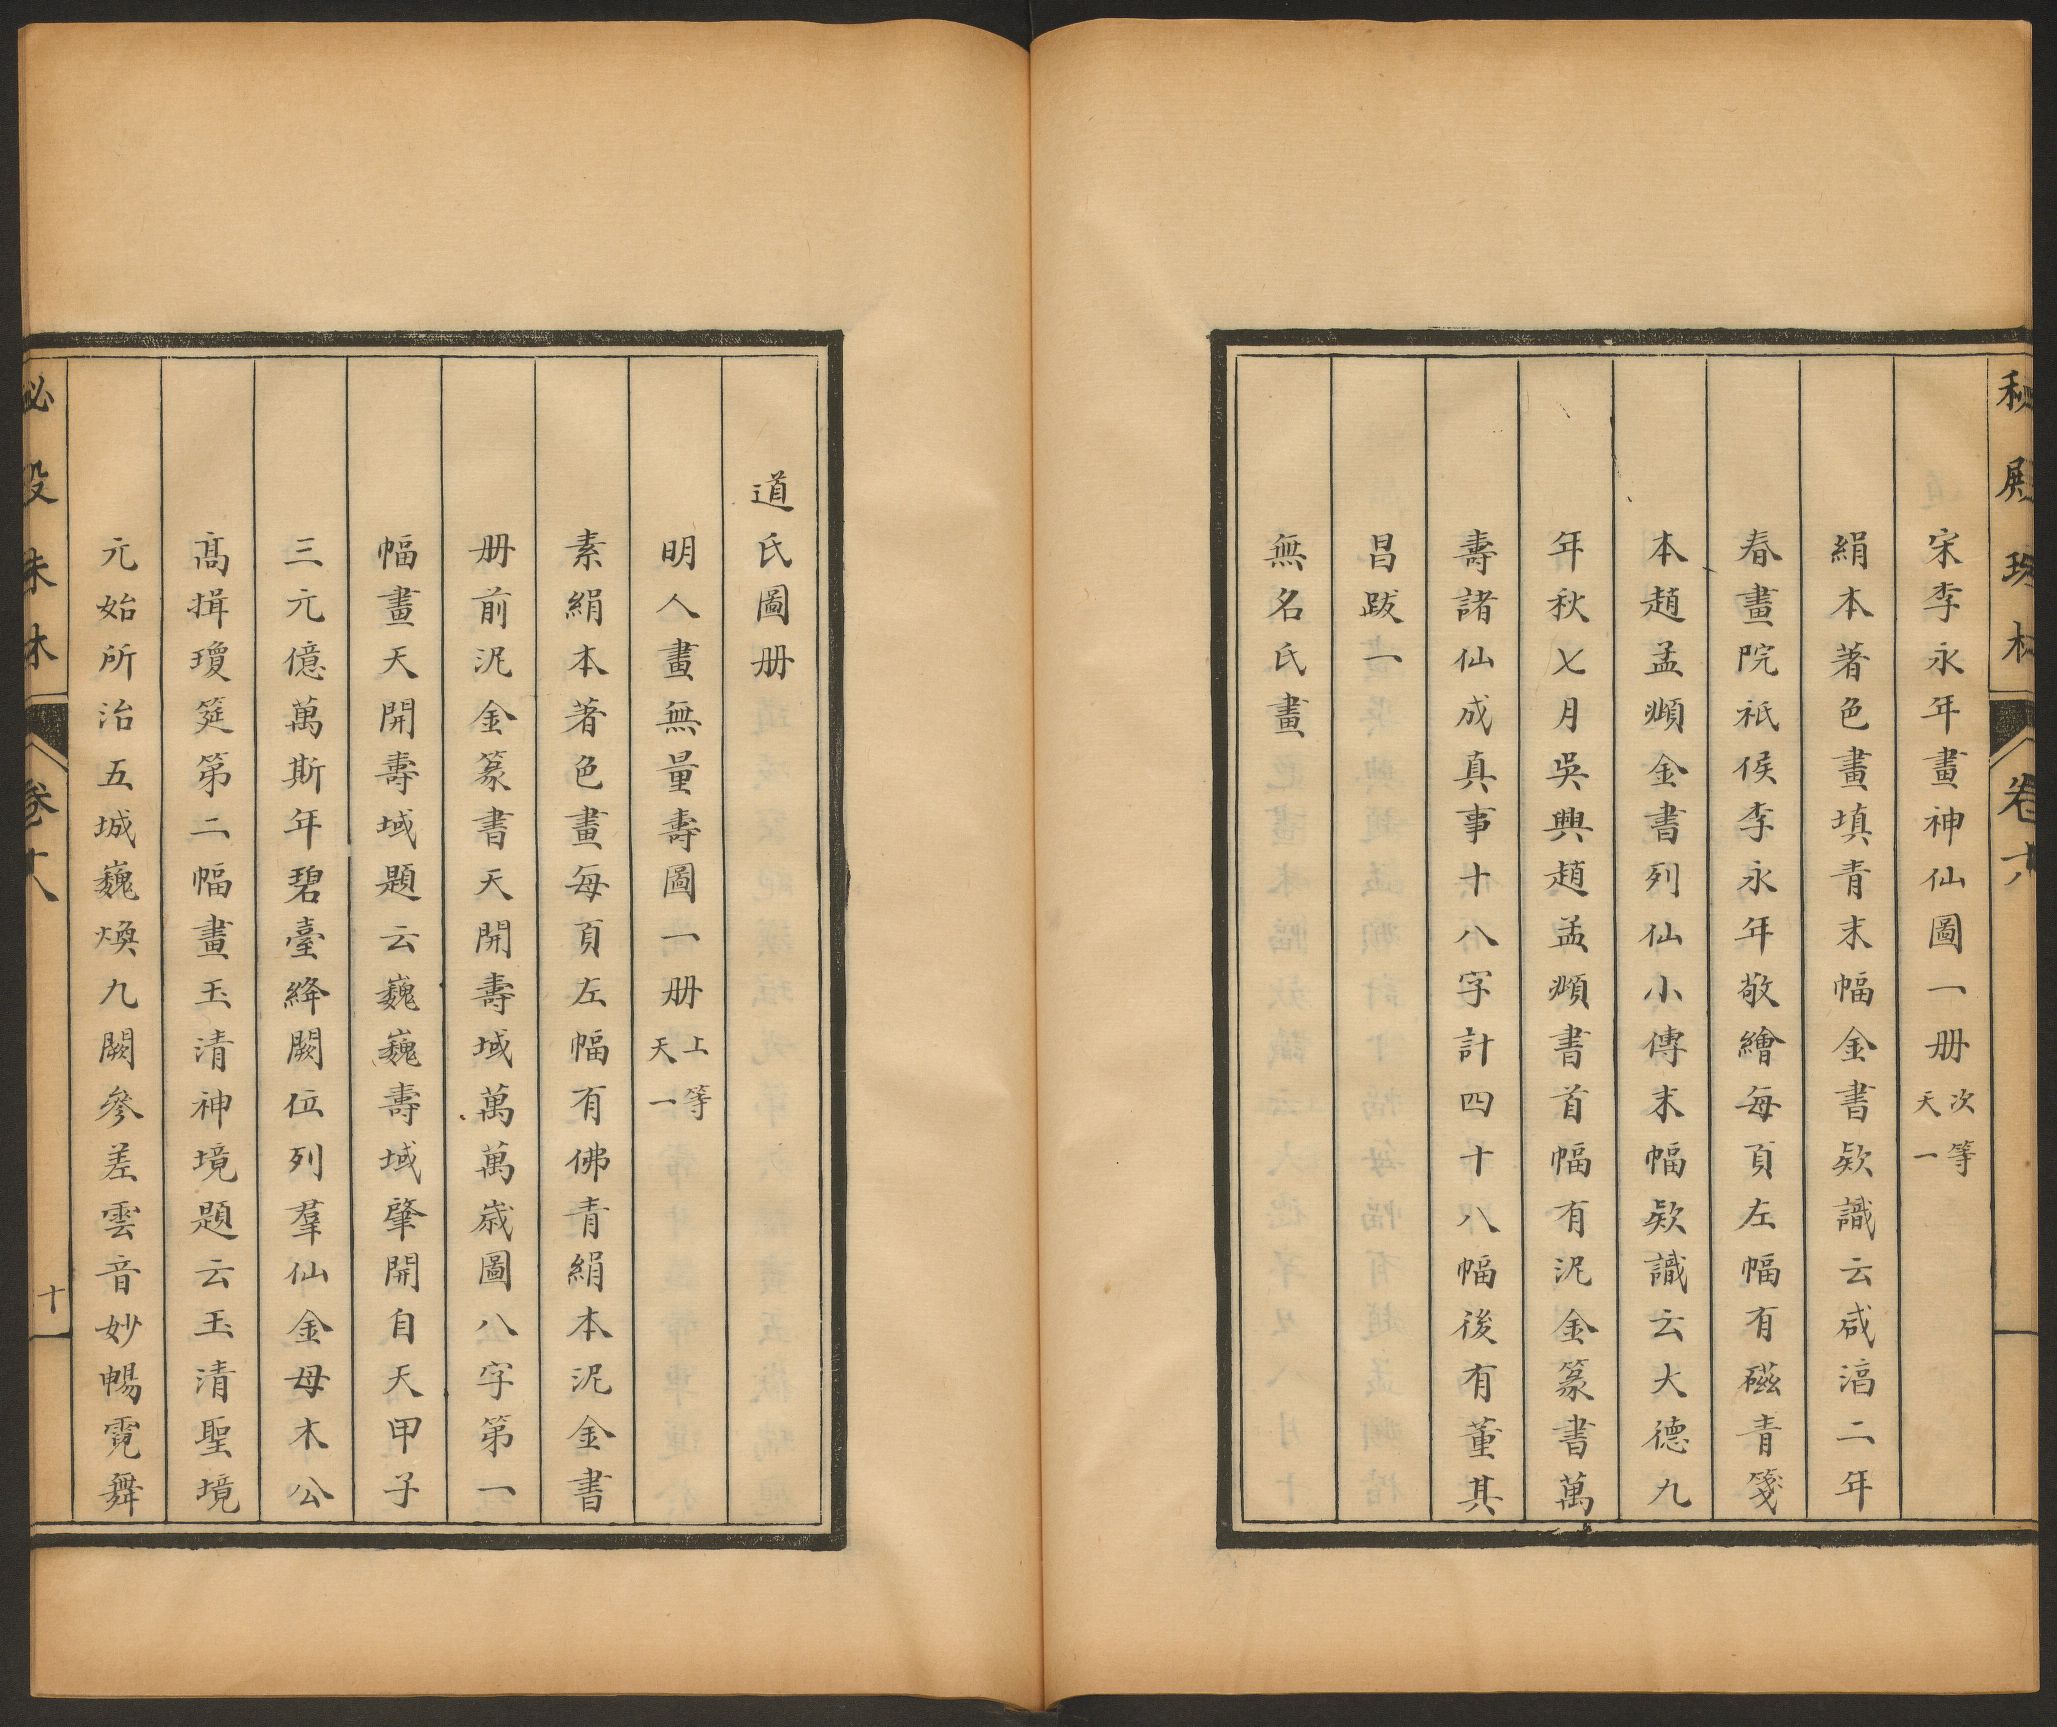 宋李永年畫神仙圖一册次等天一
絹本著色畫填青末幅金書欵識云咸淳二年
春畫院祇侯李永年敬繪每頁左幅有磁青箋
本趙孟頫金書列仙小傳末幅欵識云大德九
年秋七月吳興趙孟頫書首幅有泥金篆書萬
壽諸仙成真事十八字計四十八幅後有董其
昌跋一
無名氏畫
道氏圖册
明人畫無量壽圖一册上等天一
素絹本著色畫每頁左幅有佛青絹本泥金書
册前泥金篆書天開壽域萬萬歲圖八字第一
幅畫天開壽域題云巍巍壽域肇開自天甲子
三元億萬斯年碧臺絳闕位列羣仙金母木公
高揖瓊筵第二幅畫玉清神境題云玉清聖境
元始所治五城巍煥九闕參差雲音妙暢霓舞
十